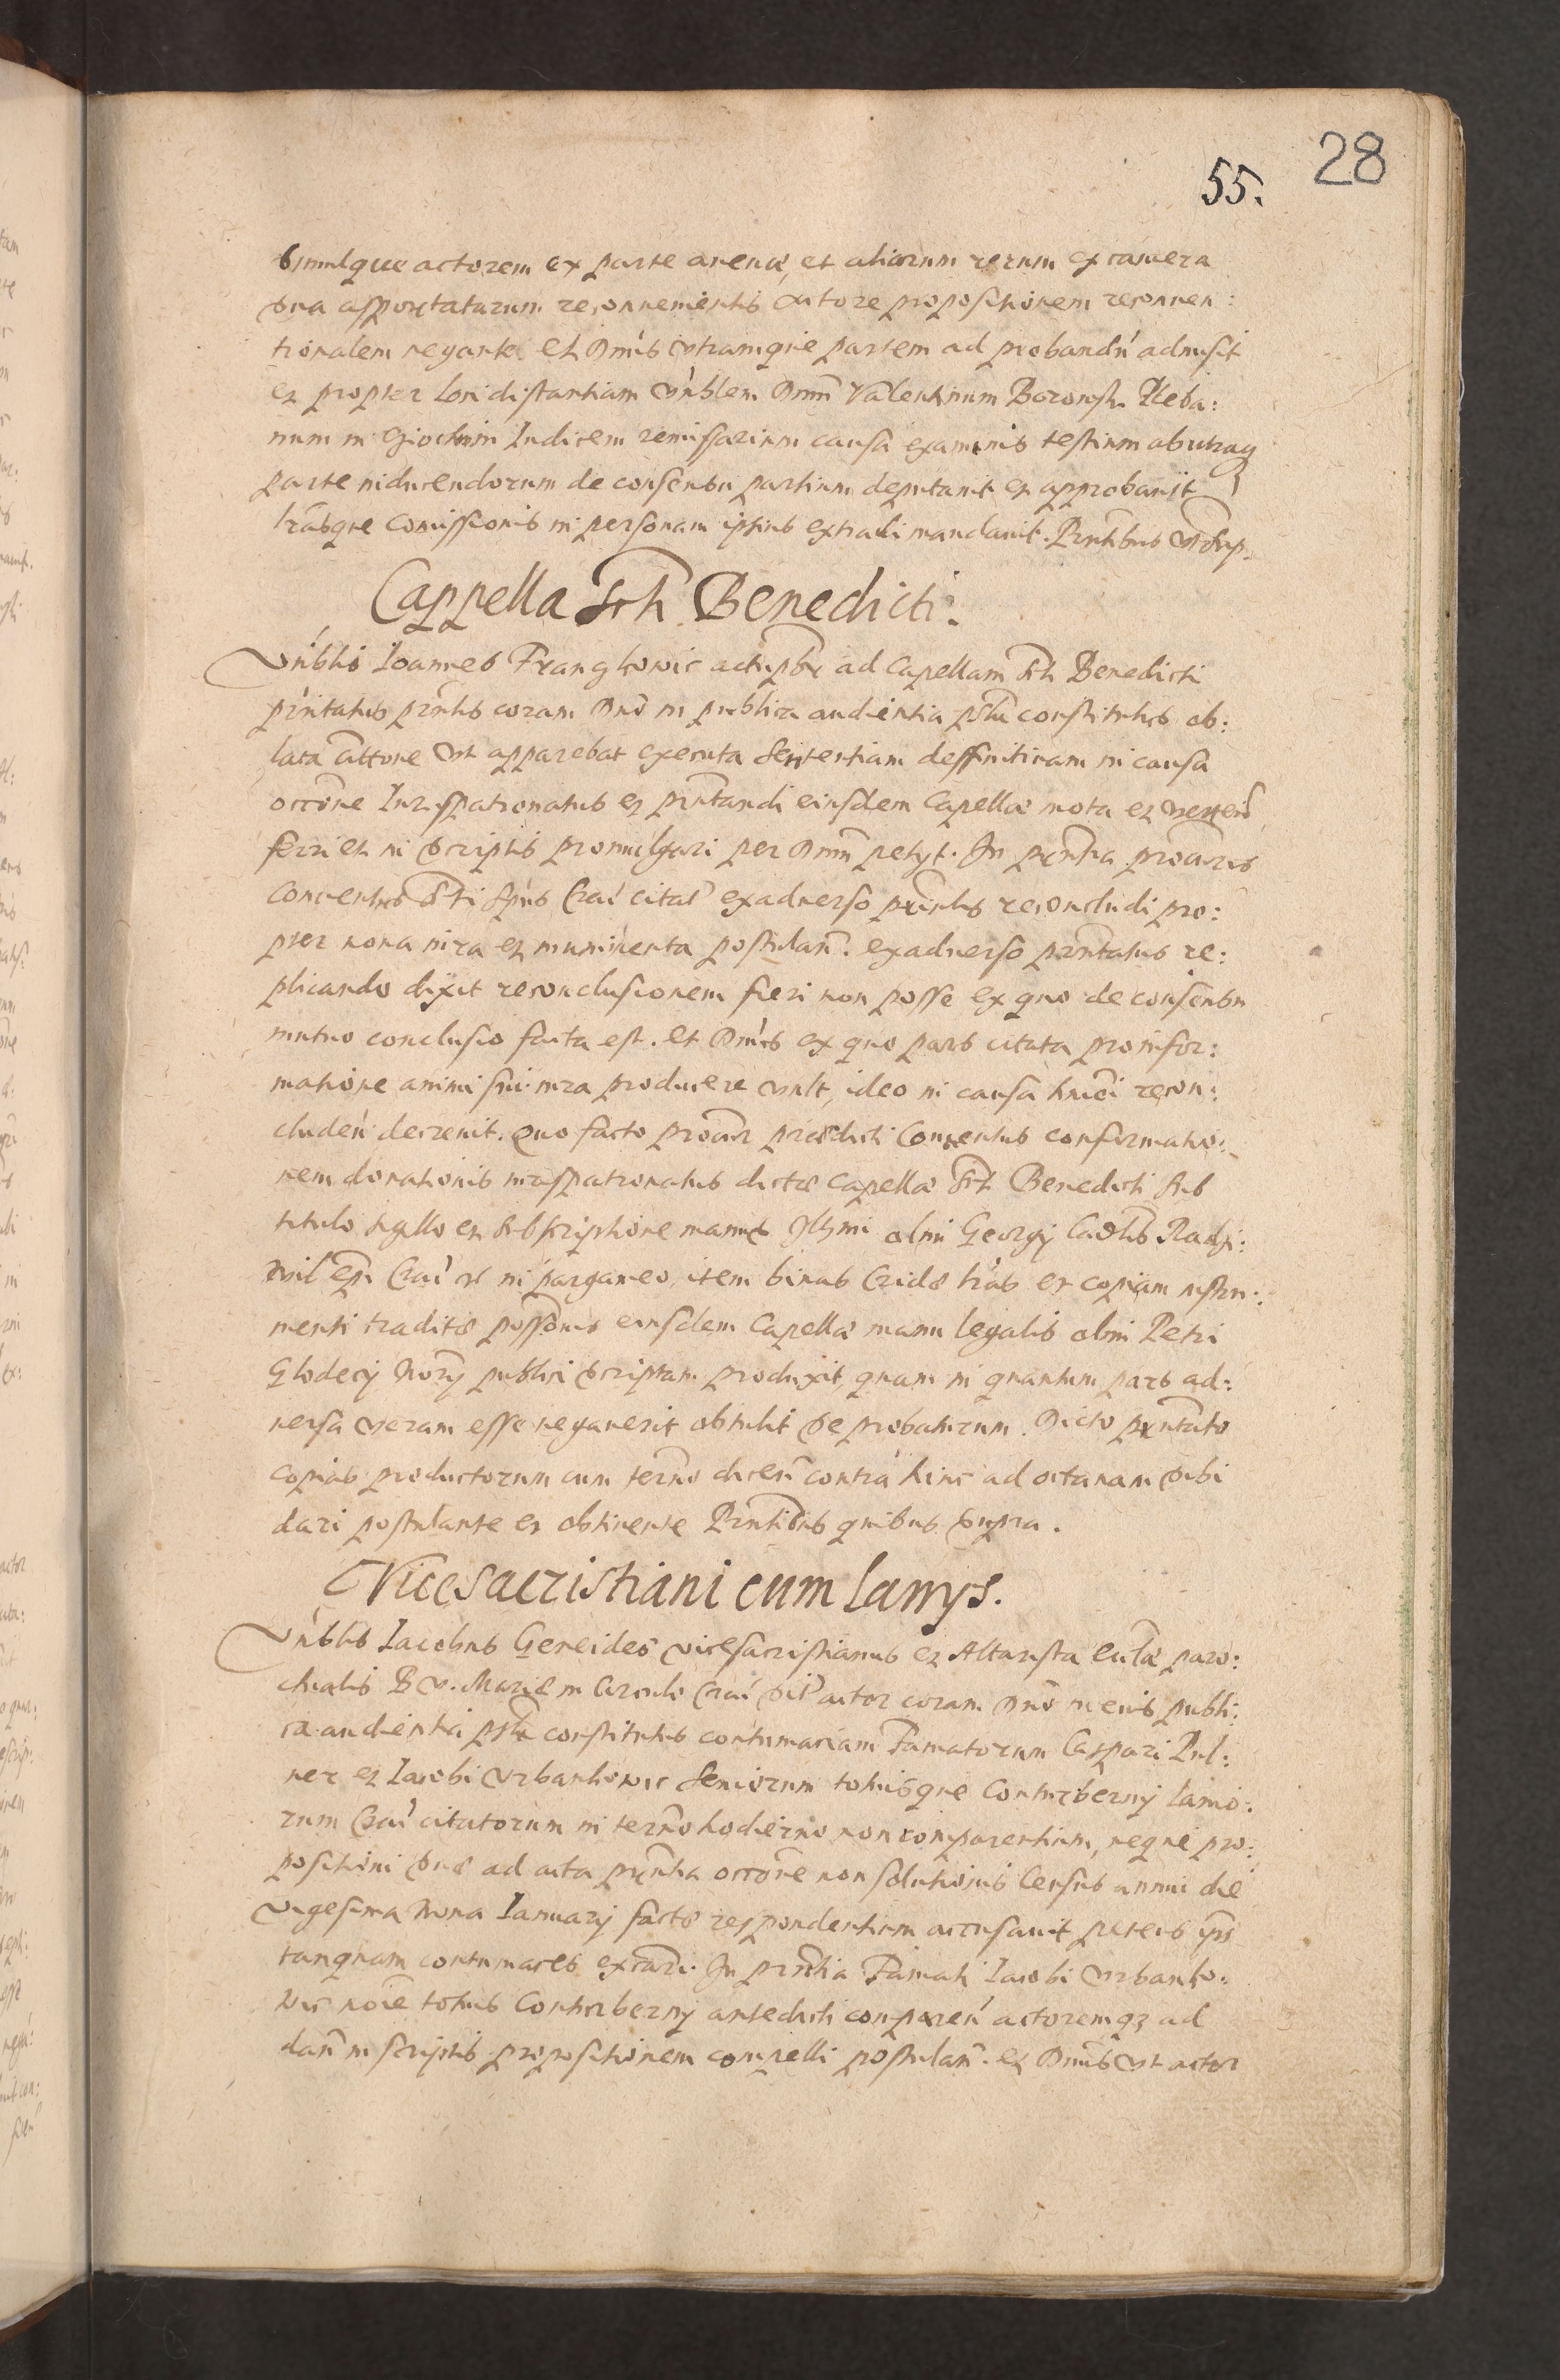 28
55.
simulque actorem ex parte avenæ, et aliarum rerum ex camera
sua asportatarum reconvenientis actore propositionem reconven:
tionalem negante. et Dnus utramque partem ad probandu admisit
et propter loci distantiam Vnblem Dnm Valentinum Borowsk. Pleba:
num in Iudicem remissarium causa examinis testium ab utraq
parte inducendorum de consensu partium deputavit et approbavit
lrasque Comissionis in personam ipsius extradi mandavit. Pntibus ut sup.
Cappella Scti Benedicti.
Vnblis Ioannes Frangkowic ad Capellam Scti Benedicti
pntatus pntis coram Dno in publica audientia pslr constitutus ob:
lata ut apparebat executa Sententiam deffinitivam in causa
occone Iurispatronatus et pntandi eiusdem Capellæ mota et
ferri et in scriptis promulgari per Dnm petyt. In pntia procuris
Conventus Scti Spus Crac citat exadverso pntis reconcludi pro:
pter nova iura et munimenta postulan. exadverso pntatus re:
plicando dixit reconclusionem fieri non posse ex quo de consensu
mutuo conclusio facta est. et Dnus ex quo pars citata pro infor:
matione animi sui iura producere vult, ideo in causa hmoi recon:
cluden decrevit. Quo facto procur prædicti Conventus confirmatio:
nem donationis iurispatronatus dictæ Capellæ Scti Benedicti sub
titulo sigillo et subscriptione manus Illmi olim Georgij Cardlis Radzi:
wil Epi Crac in pargameo, item binas Cridæ lras et copiam instru:
menti traditæ possonis eiusdem Capellæ manu legalis olim Petri
Glodecij Nory publici scriptam produxit, quam in quantum pars ad:
versa veram esse negaverit obtulit se probaturum. Dicto pntato
copias productorum cum termo dicen contra hinc ad octavam sibi
dari postulante et obtinente Pntibus quibus supra.
Vicesacristiani cum Lanijs.
Vnblis Iacobus Gereides vicesacristianus et Altarista Ecclæ paro:
chialis B. V. Mariæ in Circulo Crac sit actor coram Dno in eius publi:
ca audientia pslr constitutus contumaciam Famatorum Caspari Pul:
ner et Iacobi Urbankowic Seniorum totiusque Contubernij lanio:
rum Crac citatorum in termo hodierno non comparentium, neque pro:
positioni suæ ad acta pntia occone non solutionis Census annui die
vigesima nona Ianuarij factæ respondentium accusavit petens ipos
tanquam contumaces excoari. In pntia Famati Iacobi Urbanko:
wic noie totius Contubernij antedicti comparen actoremq3 ad
dan in scriptis propositionem compelli postulan. et Dnus ut actor